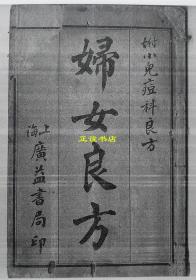 附小兒痘科良方
婦女良方
上海
廣益書局印
正读书店